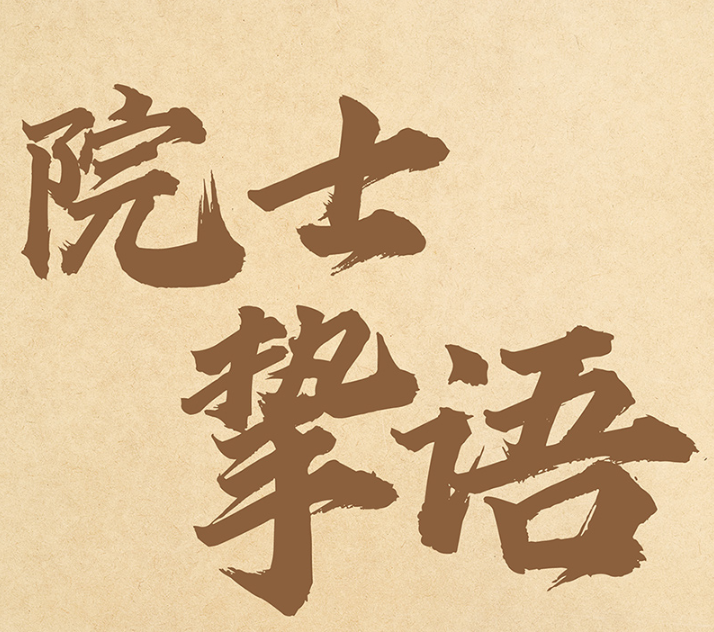 院士
挚语